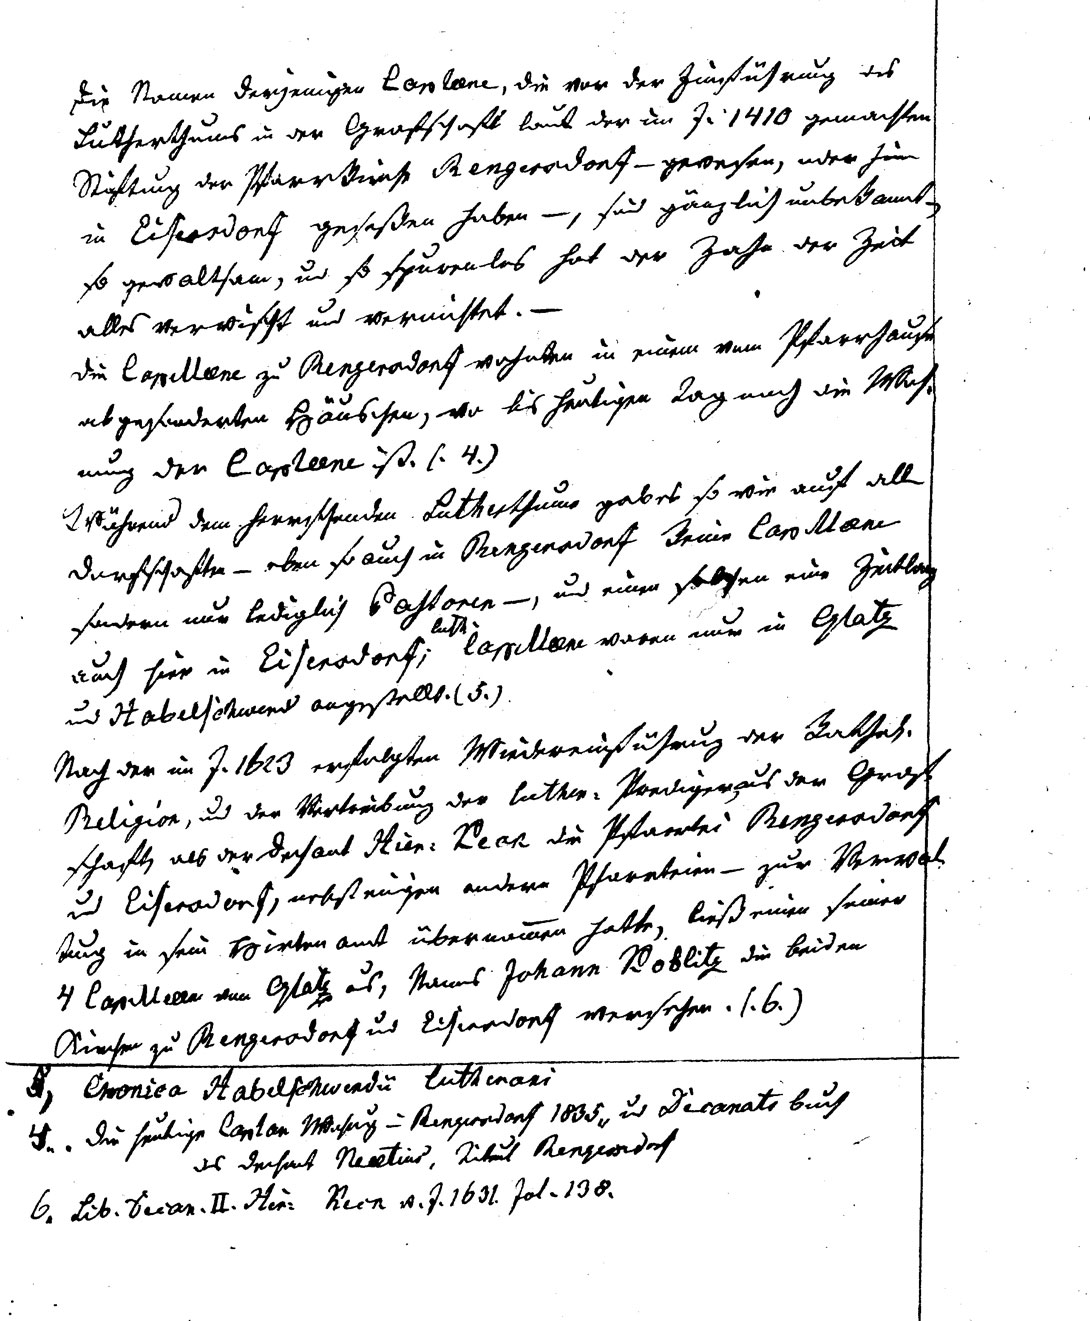 Die Namen derjenigen Caplæne, die vor der Einführung des
Lutherthums in der Grafschaft laut der im J. 1410 gemachten
Stiftung der Pfarrkirche Rengersdorf – gewesen, oder hier
in Eisersdorf gesessen haben –, sind gänzlich unbekannt –
so gewaltsam, und so spurenlos hat der Zahn der Zeit
alles verwischt und vernichtet. –
Die Capellæne zu Rengersdorf wohnten in einem vom Pfarrhause
abgesonderten Häuschen, wo bis heutigen Tag noch die Woh-
nung der Caplæne ist. (. 4.)
Während dem herrschenden Lutherthume gab es so wie auf alle
Dorfschaften – eben so auch in Rengersdorf keine Capellæne
sondern nur lediglich Pastoren –, und einen solchen eine Zeitlang
auch hier in Eisersdorf; luth: Capellæne waren nur in Glatz
und Habelschwerd angestellt. (5.)
Nach der im J. 1623 erfolgten Wiedereinführung der Kathol.
Religion, und der Vertreibung der luther: Prediger aus der Graf-
schaft, als der Dechant Hier: Keck die Pfarrtei Rengersdorf
und Eisersdorf, nebst einigen andern Pfarrteien – zur Verwal-
tung in sein Hirtenamt übernommen hatte, ließ einen seiner
4 Capellæne von Glatz aus, Namens Johann Koblitz die beiden
Kirchen zu Rengersdorf und Eisersdorf versehen. (. 6.)
5, Cronica Habelschwerdii Lutherani
4. . Die heutige Caplan Wohnung in Rengersdorf 1835, und Decanats buch
des Dechant Neætius, Titul Rengersdorf
6. Lib. Decan. II. Hier: Keck v. J. 1631. fol. 138.